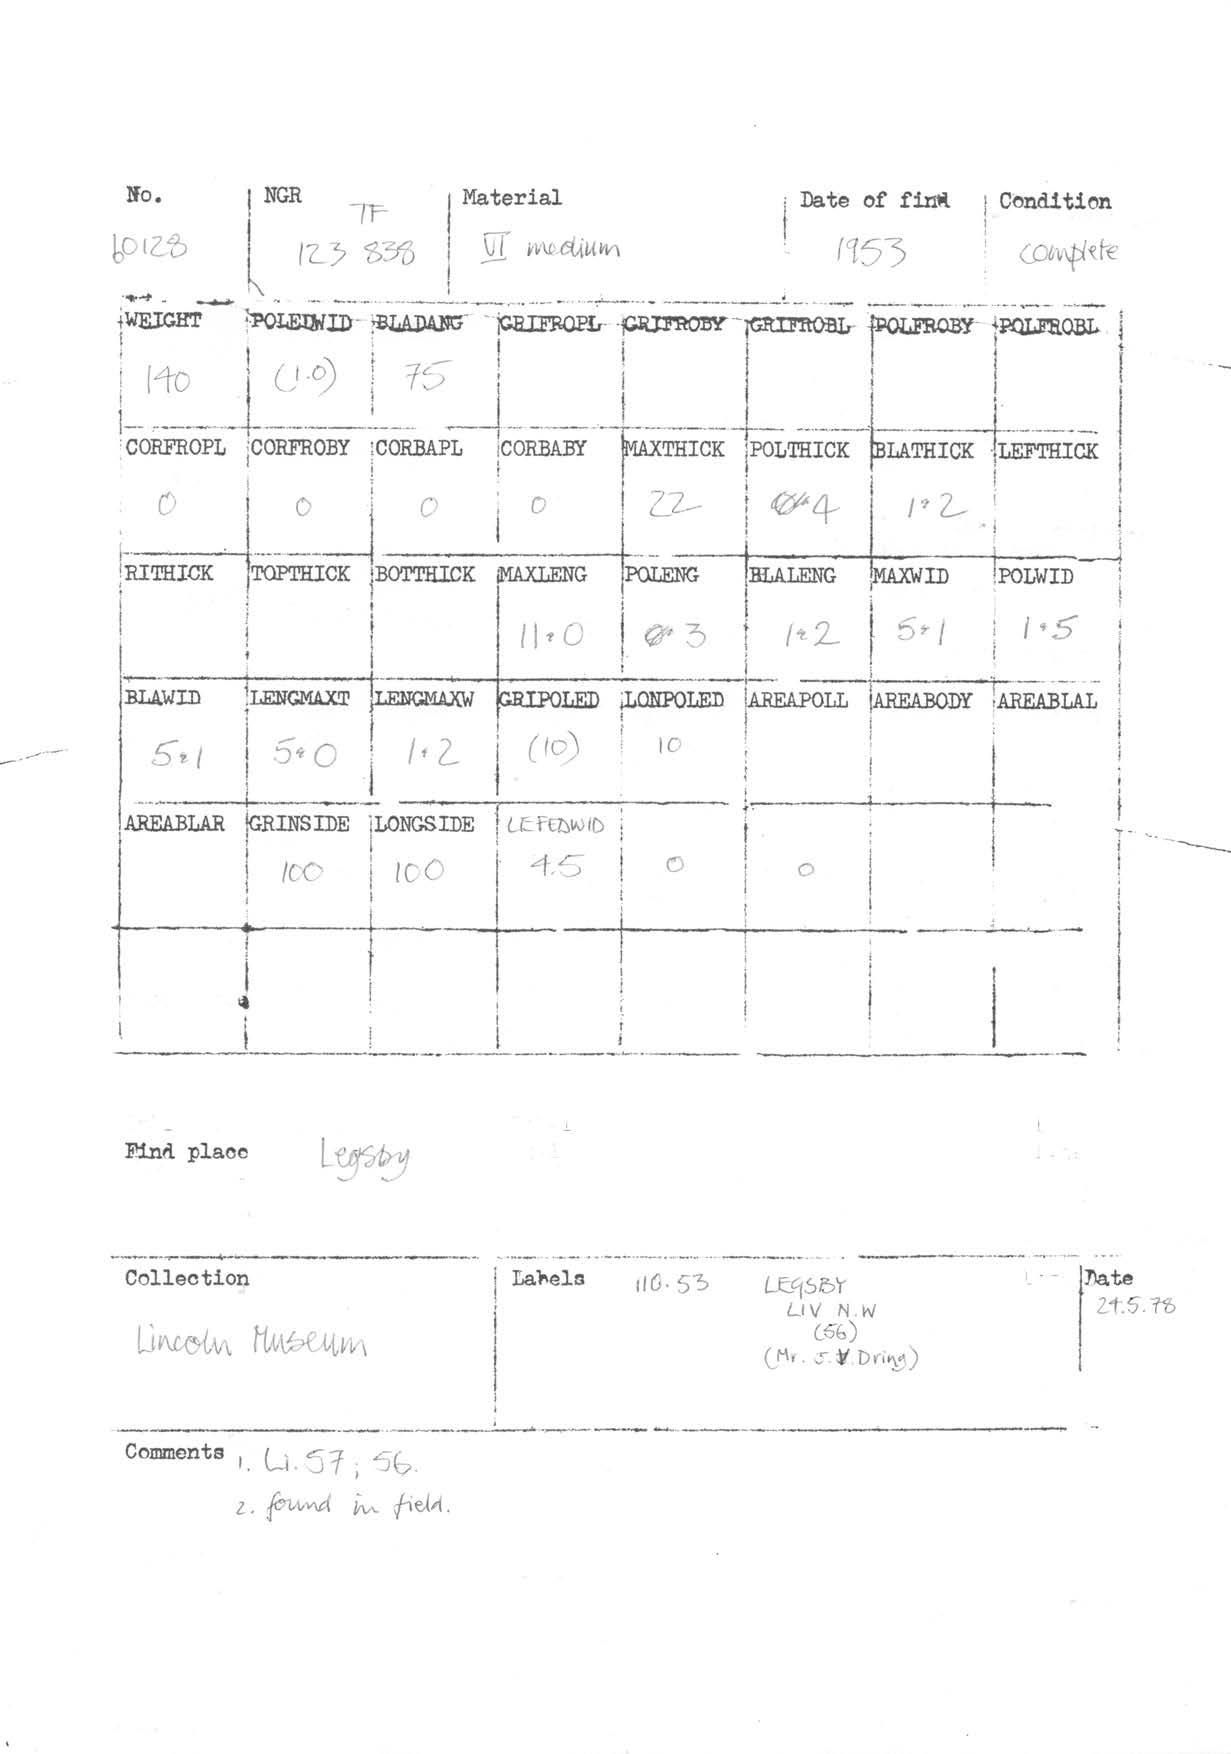 No. NGR Material Date of find Condition
TF
60128 123 838 VI medium 1953 complete
WEIGHT POLEDWID BLADANG GRIFROPL GRIFROBY GRIFROBL POLFROBY POLFROBL
140 (1.0) 75
CORFROPL CORFROBY CORBAPL CORBABY MAXTHICK POLTHICK BLATHICK LEFTHICK
0 0 0 0 22 4 1.2
RITHICK TOPTHICK BOTTHICK MAXLENG POLENG BLALENG MAXWID POLWID
11.0 0.3 1.2 5.1 1.5
BLAWID LENGMAXT LENGMAXW GRIPOLED LONPOLED AREAPOLL AREABODY AREABLAL
5.1 5.0 1.2 (10) 10
AREABLAR GRINSIDE LONGSIDE LEFEDWID
100 100 4.5 0 0
Find place Legsby
Collection Labels 110.53 LEGSBY Date
LIV N.W 24.5.78
(56)
Lincoln Museum (Mr. J. V. Dring)
Comments 1. Li. 57; 56.
2. found in field.